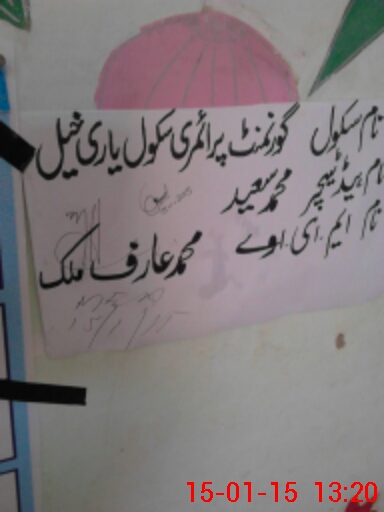 نام سکول گورنمنٹ پرائمری سکول یاری خیل
نام ہیڈ ٹیچر محمد سعید
نام ایم.ای.اوے محمد عارف ملک
15/1/15
15-01-15 13:20